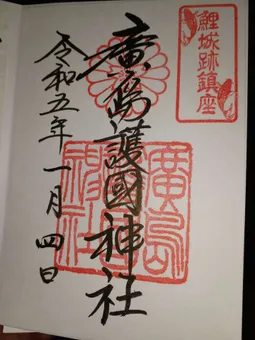 鯉城跡鎮座
廣島護國神社
令和五年一月四日
廣島
護國
神社